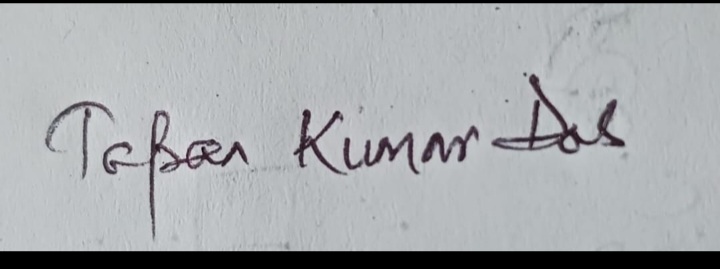 Tapan Kumar Das